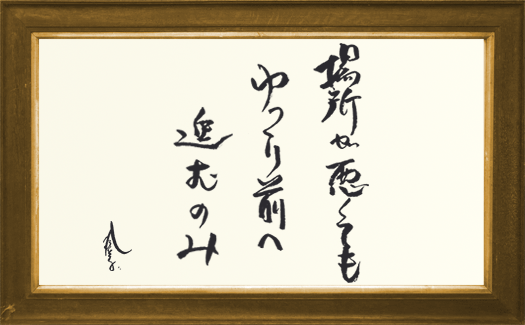 場所が悪くても
ゆっくり前へ
進むのみ